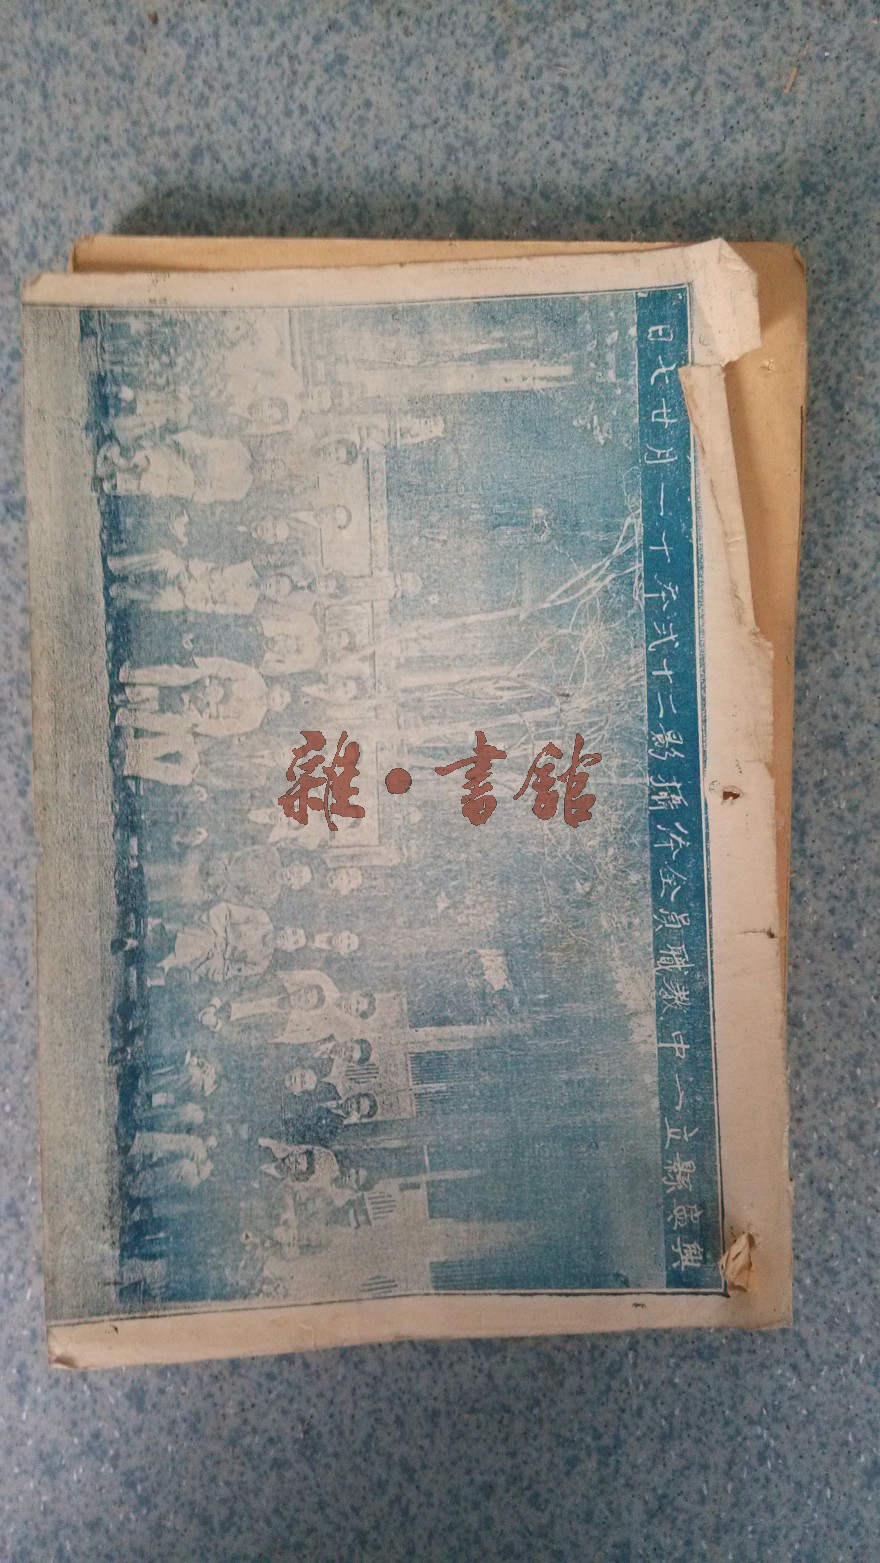 縣立一中教職員全体攝影二十弍年十一月廿七日
雜·書館